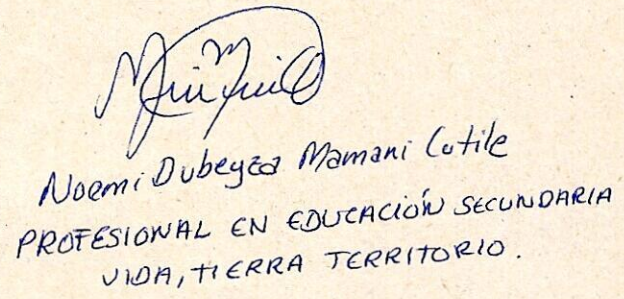 Noemi Dubeyza Mamani Cutile
PROFESIONAL EN EDUCACIÓN SECUNDARIA
VIDA, TIERRA TERRITORIO.